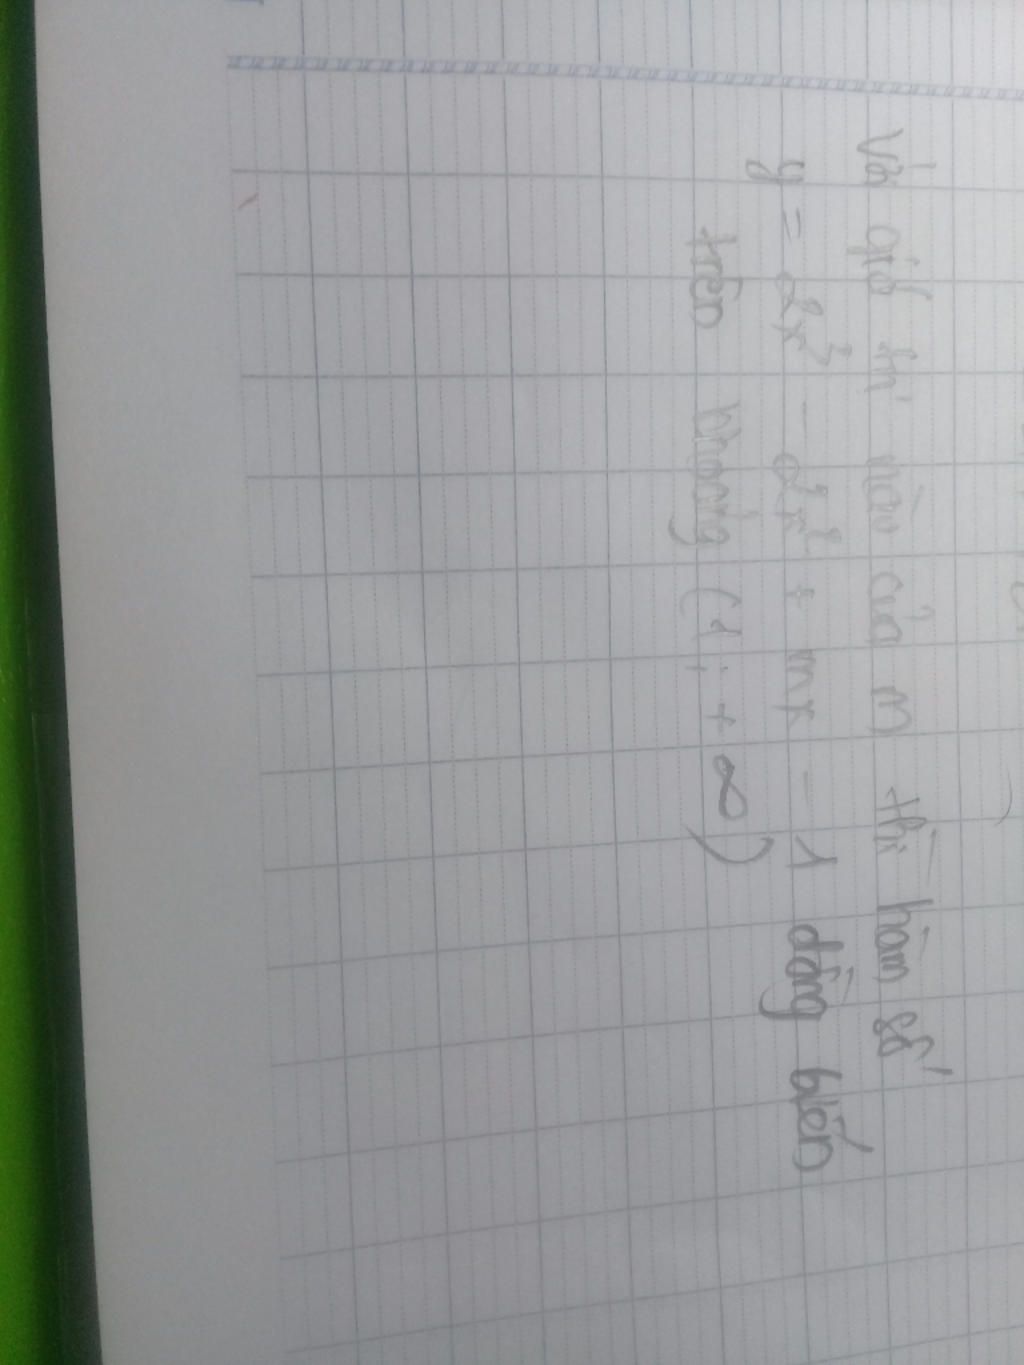 Với giá trị nào của m thì hàm số
y = 2x³ - 2x² + mx - 1 đồng biến
trên khoảng (1; +∞)